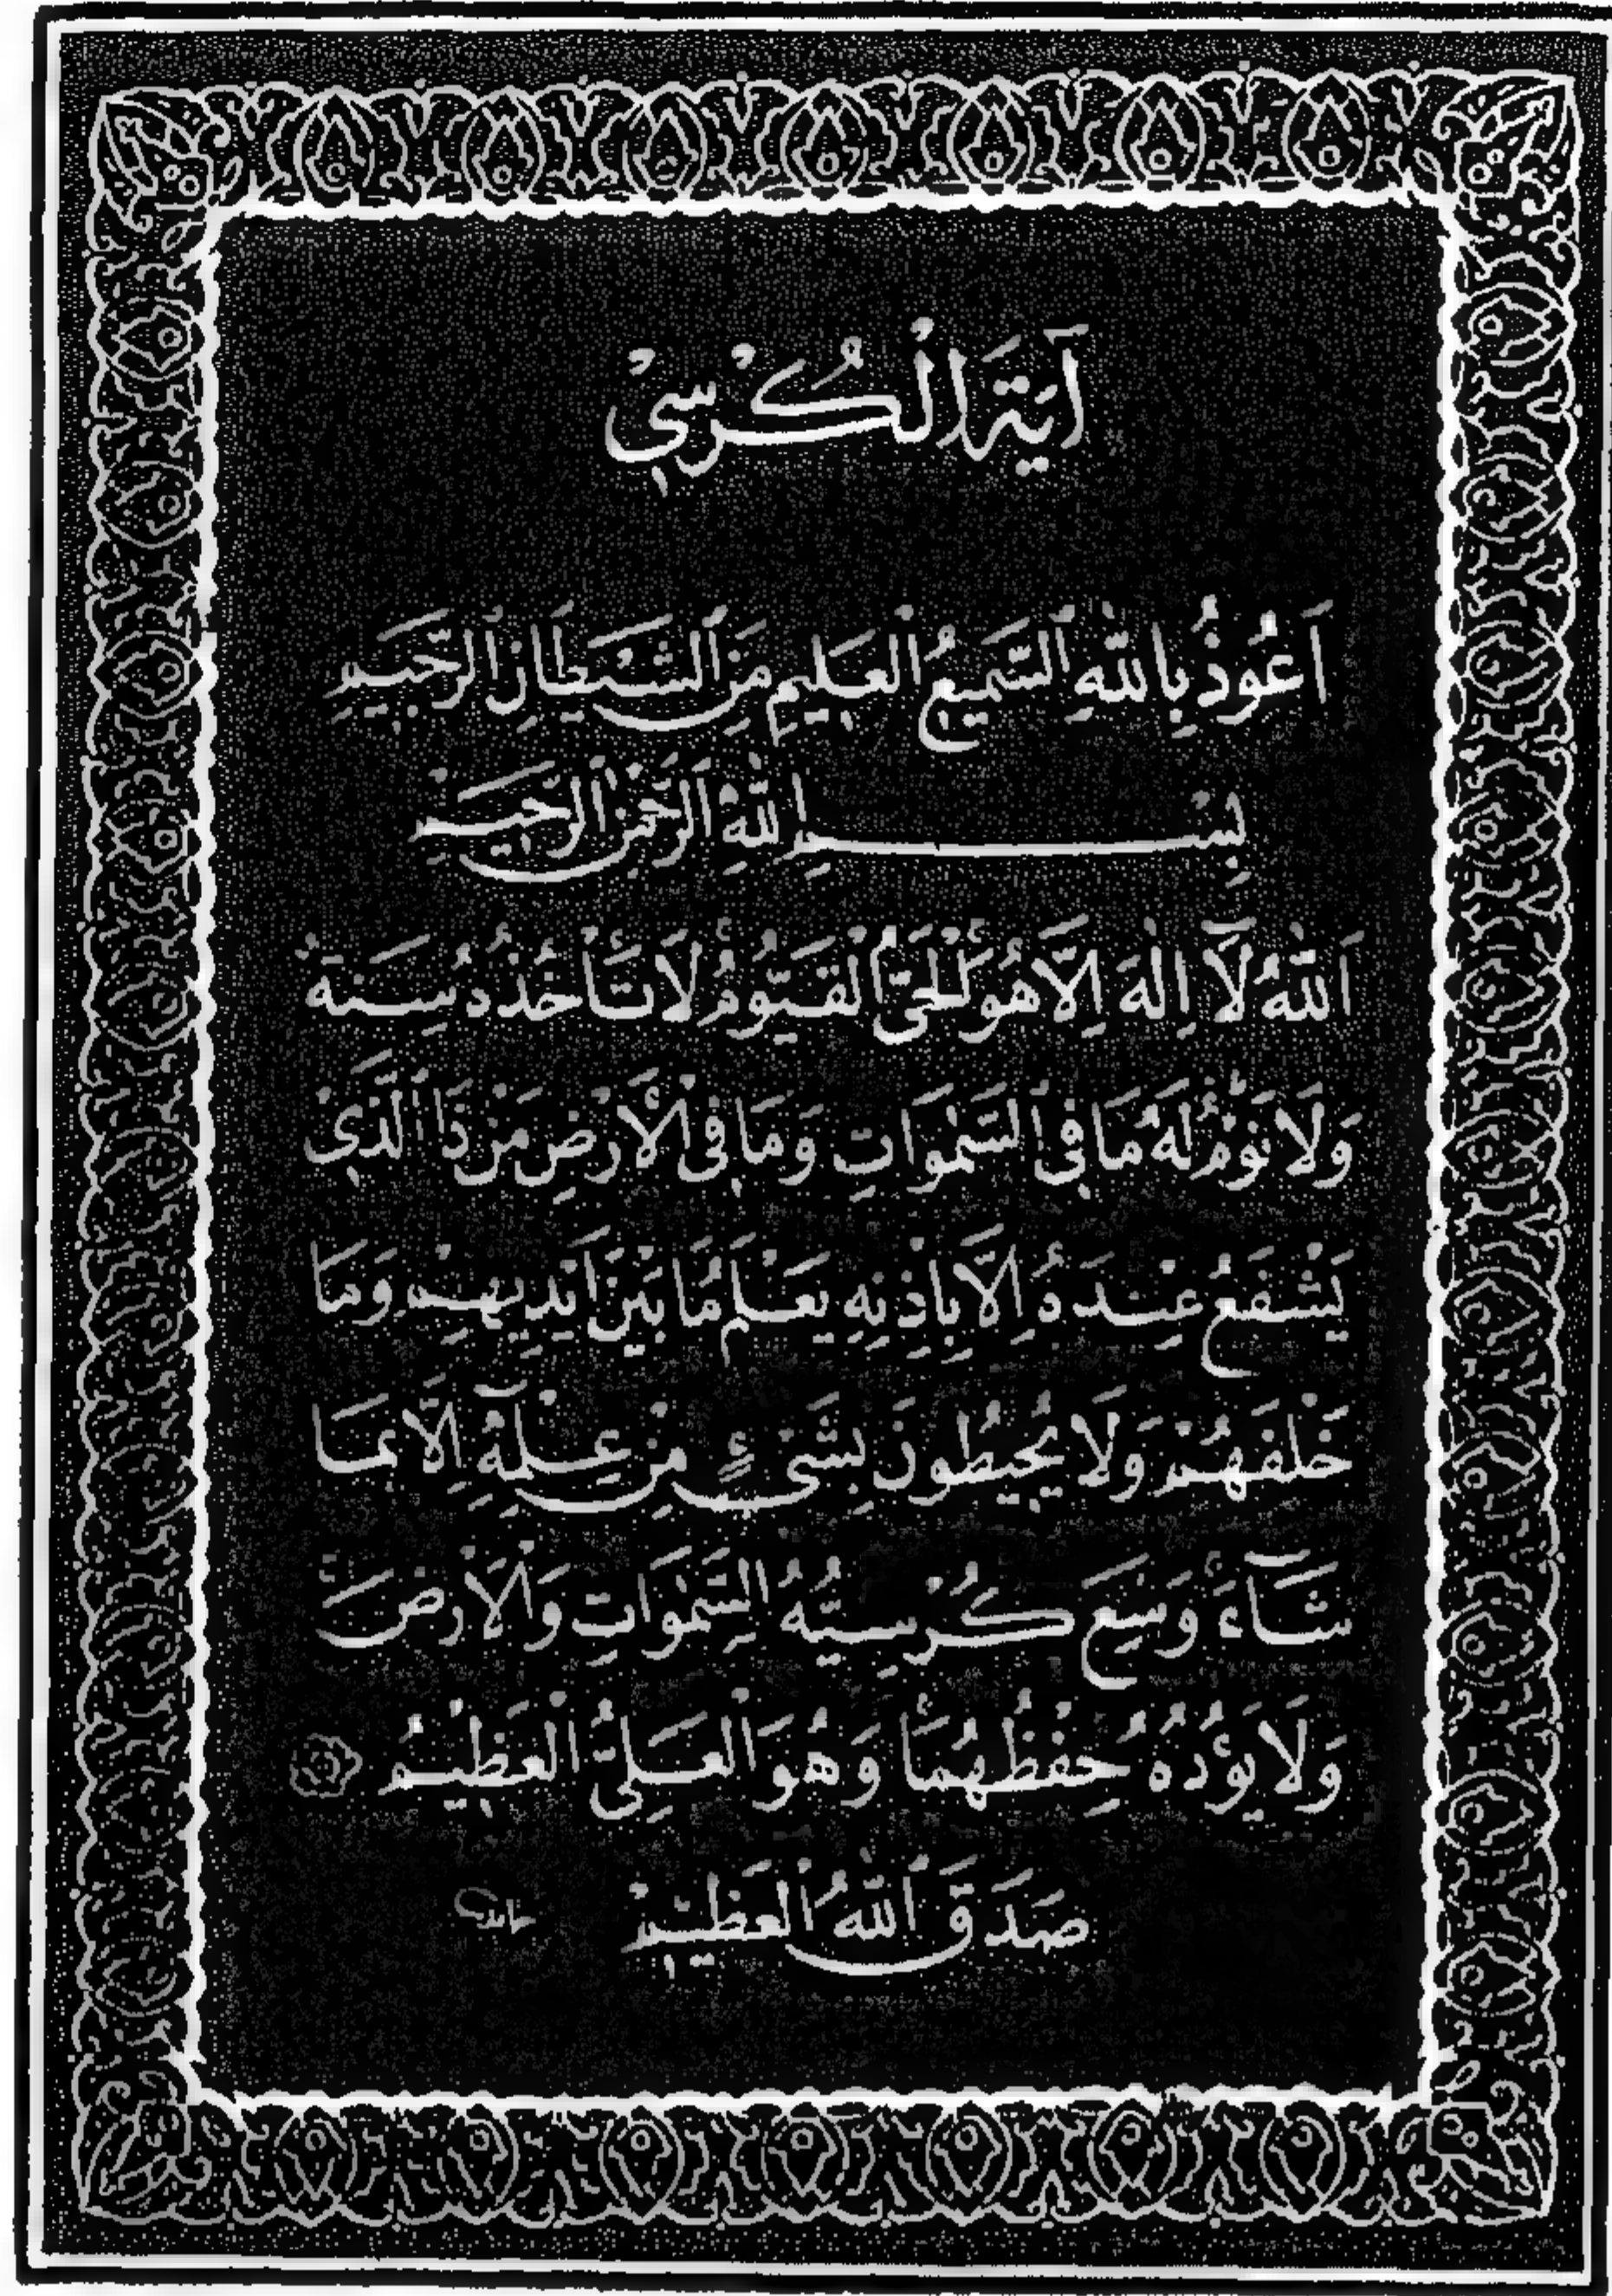 آيَةُ الْكُرْسِيْ
اَعُوذُ بِاللّٰهِ السَّمِيعِ الْعَلِيمِ مِنَ الشَّيْطَانِ الرَّجِيمِ
بِسْمِ اللّٰهِ الرَّحْمٰنِ الرَّحِيمِ
اَللّٰهُ لَآ اِلٰهَ اِلَّا هُوَ اَلْحَيُّ الْقَيُّومُ لَا تَأْخُذُهُ سِنَةٌ
وَلَا نَوْمٌ لَهُ مَا فِي السَّمٰوَاتِ وَمَا فِي الْاَرْضِ مَنْ ذَا الَّذِي
يَشْفَعُ عِنْدَهُ اِلَّا بِاِذْنِهِ يَعْلَمُ مَا بَيْنَ اَيْدِيهِمْ وَمَا
خَلْفَهُمْ وَلَا يُحِيطُونَ بِشَيْءٍ مِنْ عِلْمِهِٓ اِلَّا بِمَا
شَآءَ وَسِعَ كُرْسِيُّهُ السَّمٰوَاتِ وَالْاَرْضَ
وَلَا يَؤُدُهُ حِفْظُهُمَا وَهُوَ الْعَلِيُّ الْعَظِيْمُ
صَدَقَ اللّٰهُ الْعَظِيْمُ